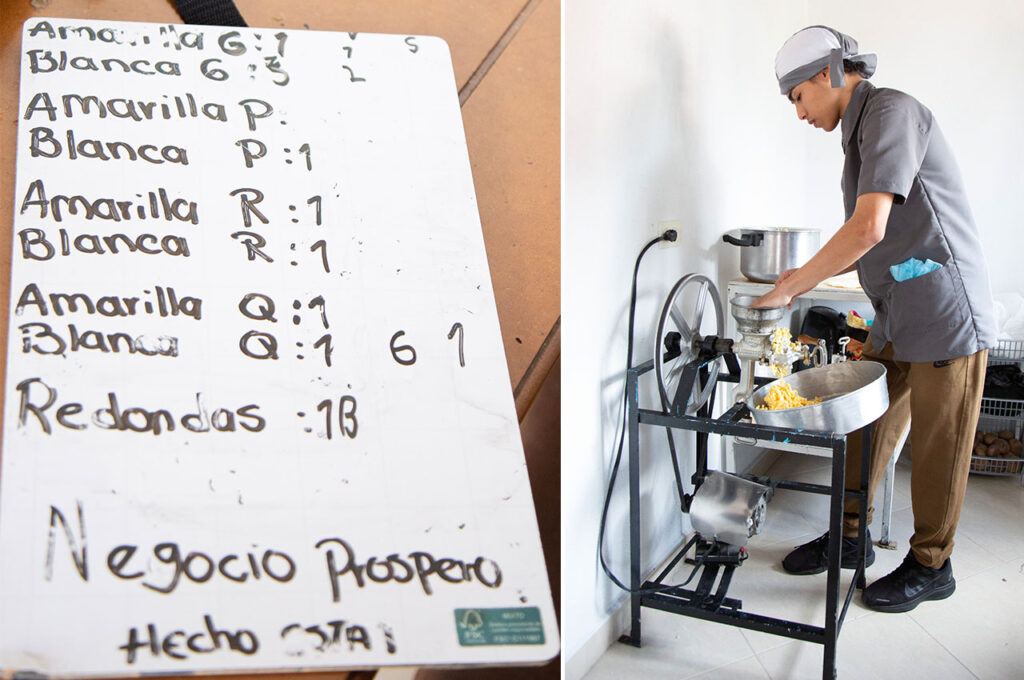 Amarilla 6:1 1 5
Blanca 6:3 2
Amarilla P.
Blanca P:1
Amarilla R:1
Blanca R:1
Amarilla Q:1
Blanca Q:1 6 1
Redondas :1B
Negocio Prospero
Hecho ESTA!
MIXTO
FSC